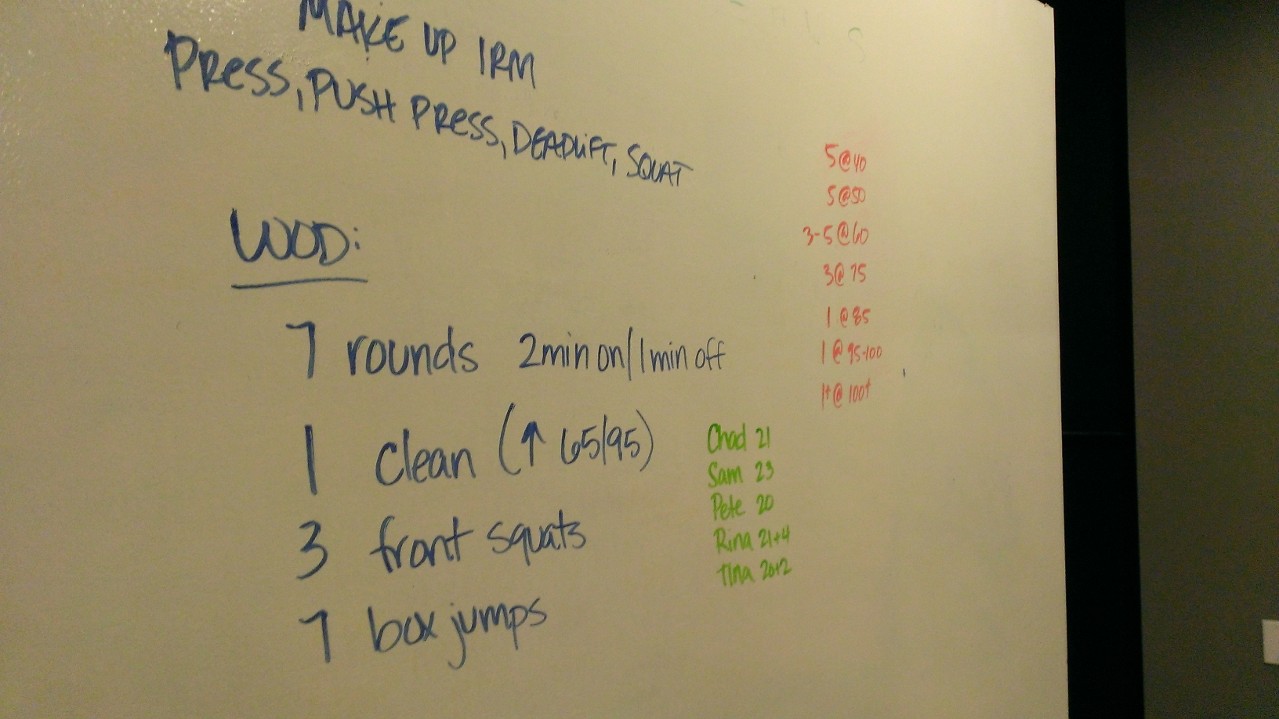 MAKE UP 1RM
PRESS, PUSH PRESS, DEADLIFT, SQUAT
WOD:
7 rounds 2min on/1min off
1 clean (↑ 65/95)
3 front squats
7 box jumps
5@40
5@50
3-5@60
3@75
1@85
1@95-100
1+@100+
Chad 21
Sam 23
Pete 20
Rina 21+4
Tina 20+2